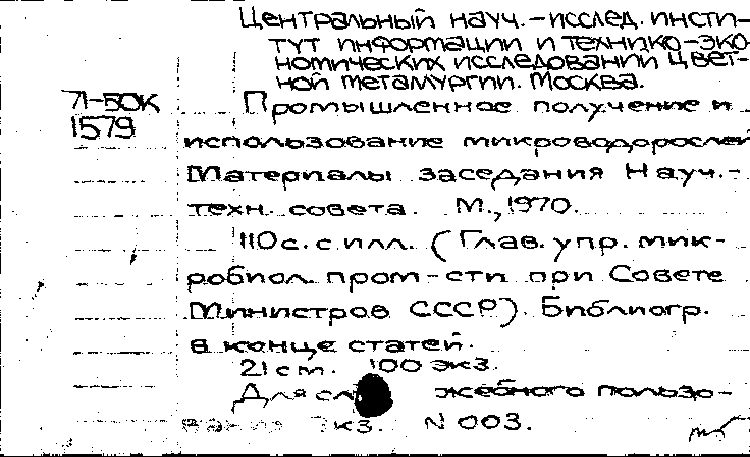 Центральный науч.-исслед. инсти-
тут информации и технико-эко-
номических исследований цвет-
ной металургии. Москва.
71-БОК
1579
Промышленное получение и
использование микроводорослей
Материалы заседания Науч.-
техн. совета. М., 1970.
110 с. с илл. (Глав. упр. мик-
робиол. пром-сти при Совете
Министров СССР). Библиогр.
в конце статей.
21 см. 100 экз.
Для служебного пользо-
вания Экз. N 003.